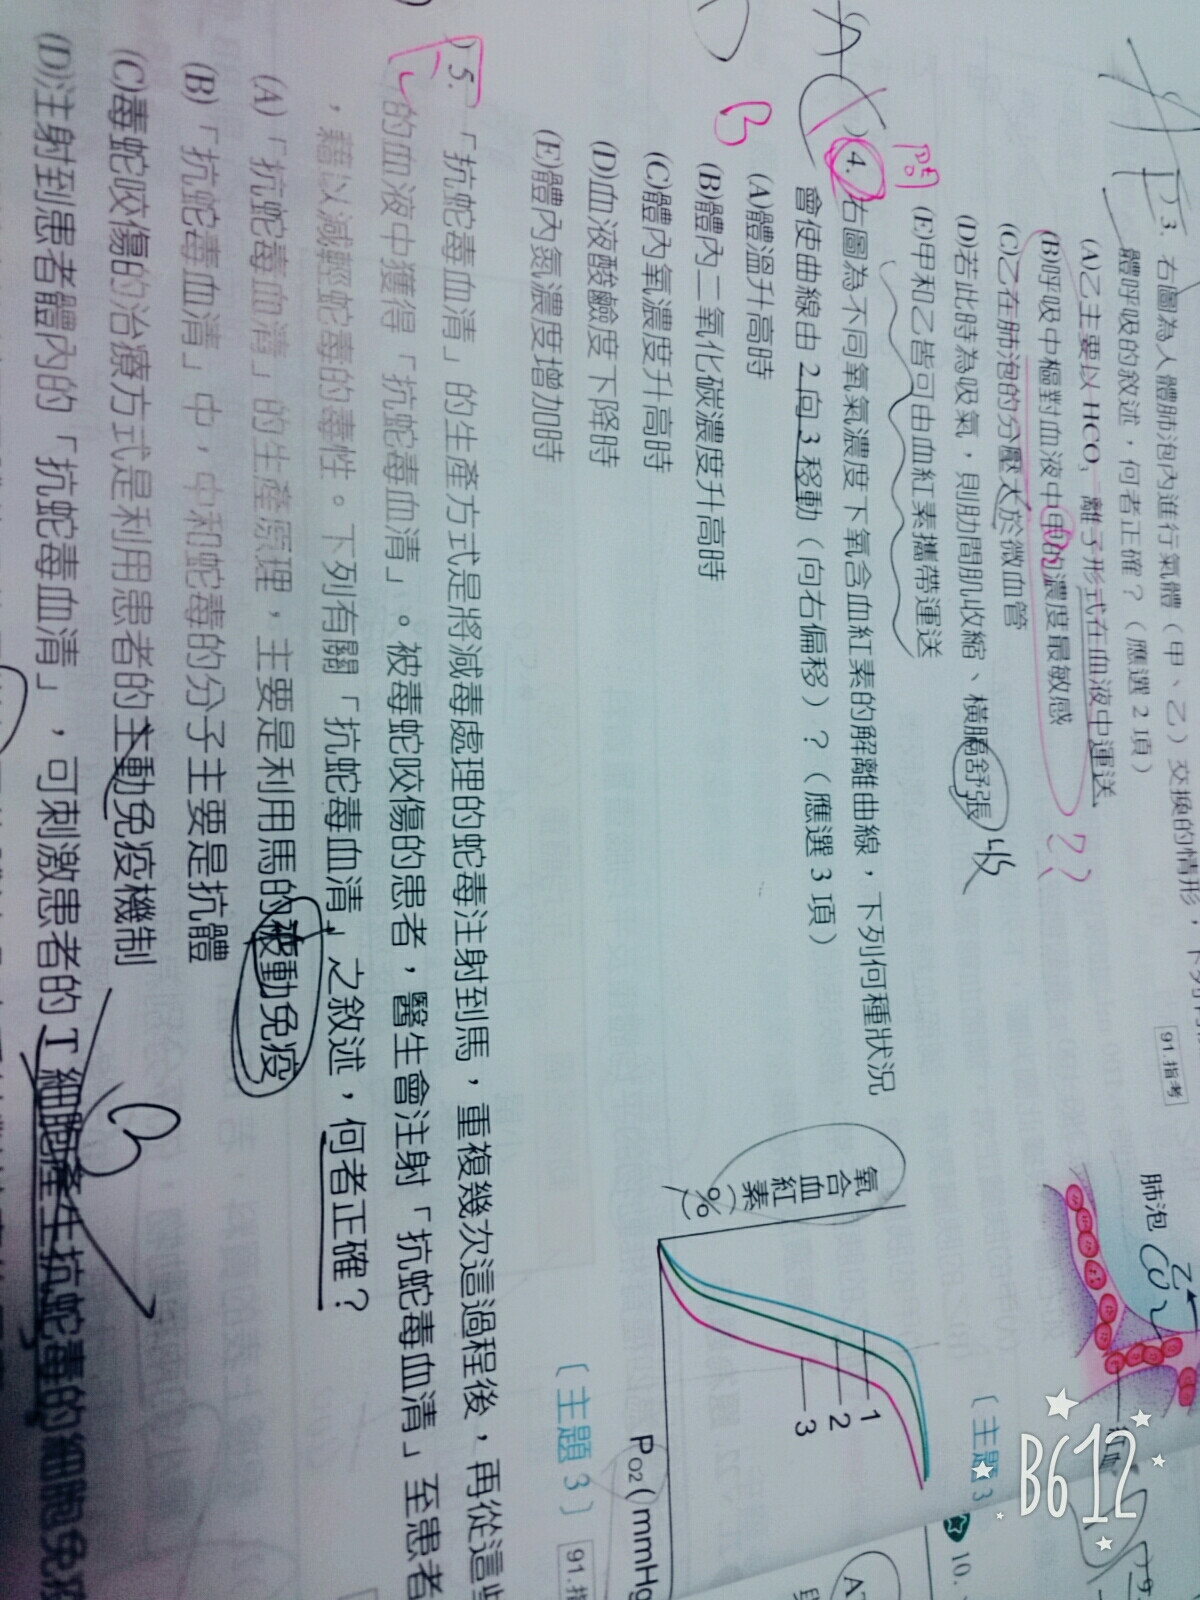 3. 右圖為人體肺泡內進行氣體（甲、乙）交換的情形，下列
體呼吸的敘述，何者正確？（應選 2 項）
91.指考
(A)乙主要以 HCO₃⁻ 離子形式在血液中運送
(B)呼吸中樞對血液中甲的濃度最敏感
??
(C)乙在肺泡的分壓大於微血管
(D)若此時為吸氣，則肋間肌收縮、橫膈舒張
收
(E)甲和乙皆可由血紅素攜帶運送
肺泡
CO₂
乙
〔主題 3
4. 右圖為不同氧氣濃度下氧合血紅素的解離曲線，下列何種狀況
會使曲線由 2 向 3 移動（向右偏移）？（應選 3 項）
B
(A)體溫升高時
(B)體內二氧化碳濃度升高時
(C)體內氧濃度升高時
(D)血液酸鹼度下降時
(E)體內氮濃度增加時
氧合血紅素(%)
1
2
3
PO2(mmHg
〔主題 3〕
91.指
5. 「抗蛇毒血清」的生產方式是將減毒處理的蛇毒注射到馬，重複幾次這過程後，再從這些
的血液中獲得「抗蛇毒血清」。被毒蛇咬傷的患者，醫生會注射「抗蛇毒血清」至患者
，藉以減輕蛇毒的毒性。下列有關「抗蛇毒血清」之敘述，何者正確？
(A)「抗蛇毒血清」的生產原理，主要是利用馬的被動免疫
(B)「抗蛇毒血清」中，中和蛇毒的分子主要是抗體
(C)毒蛇咬傷的治療方式是利用患者的主動免疫機制
B
(D)注射到患者體內的「抗蛇毒血清」，可刺激患者的 T 細胞產生抗蛇毒的細胞免疫
10.
9
B612